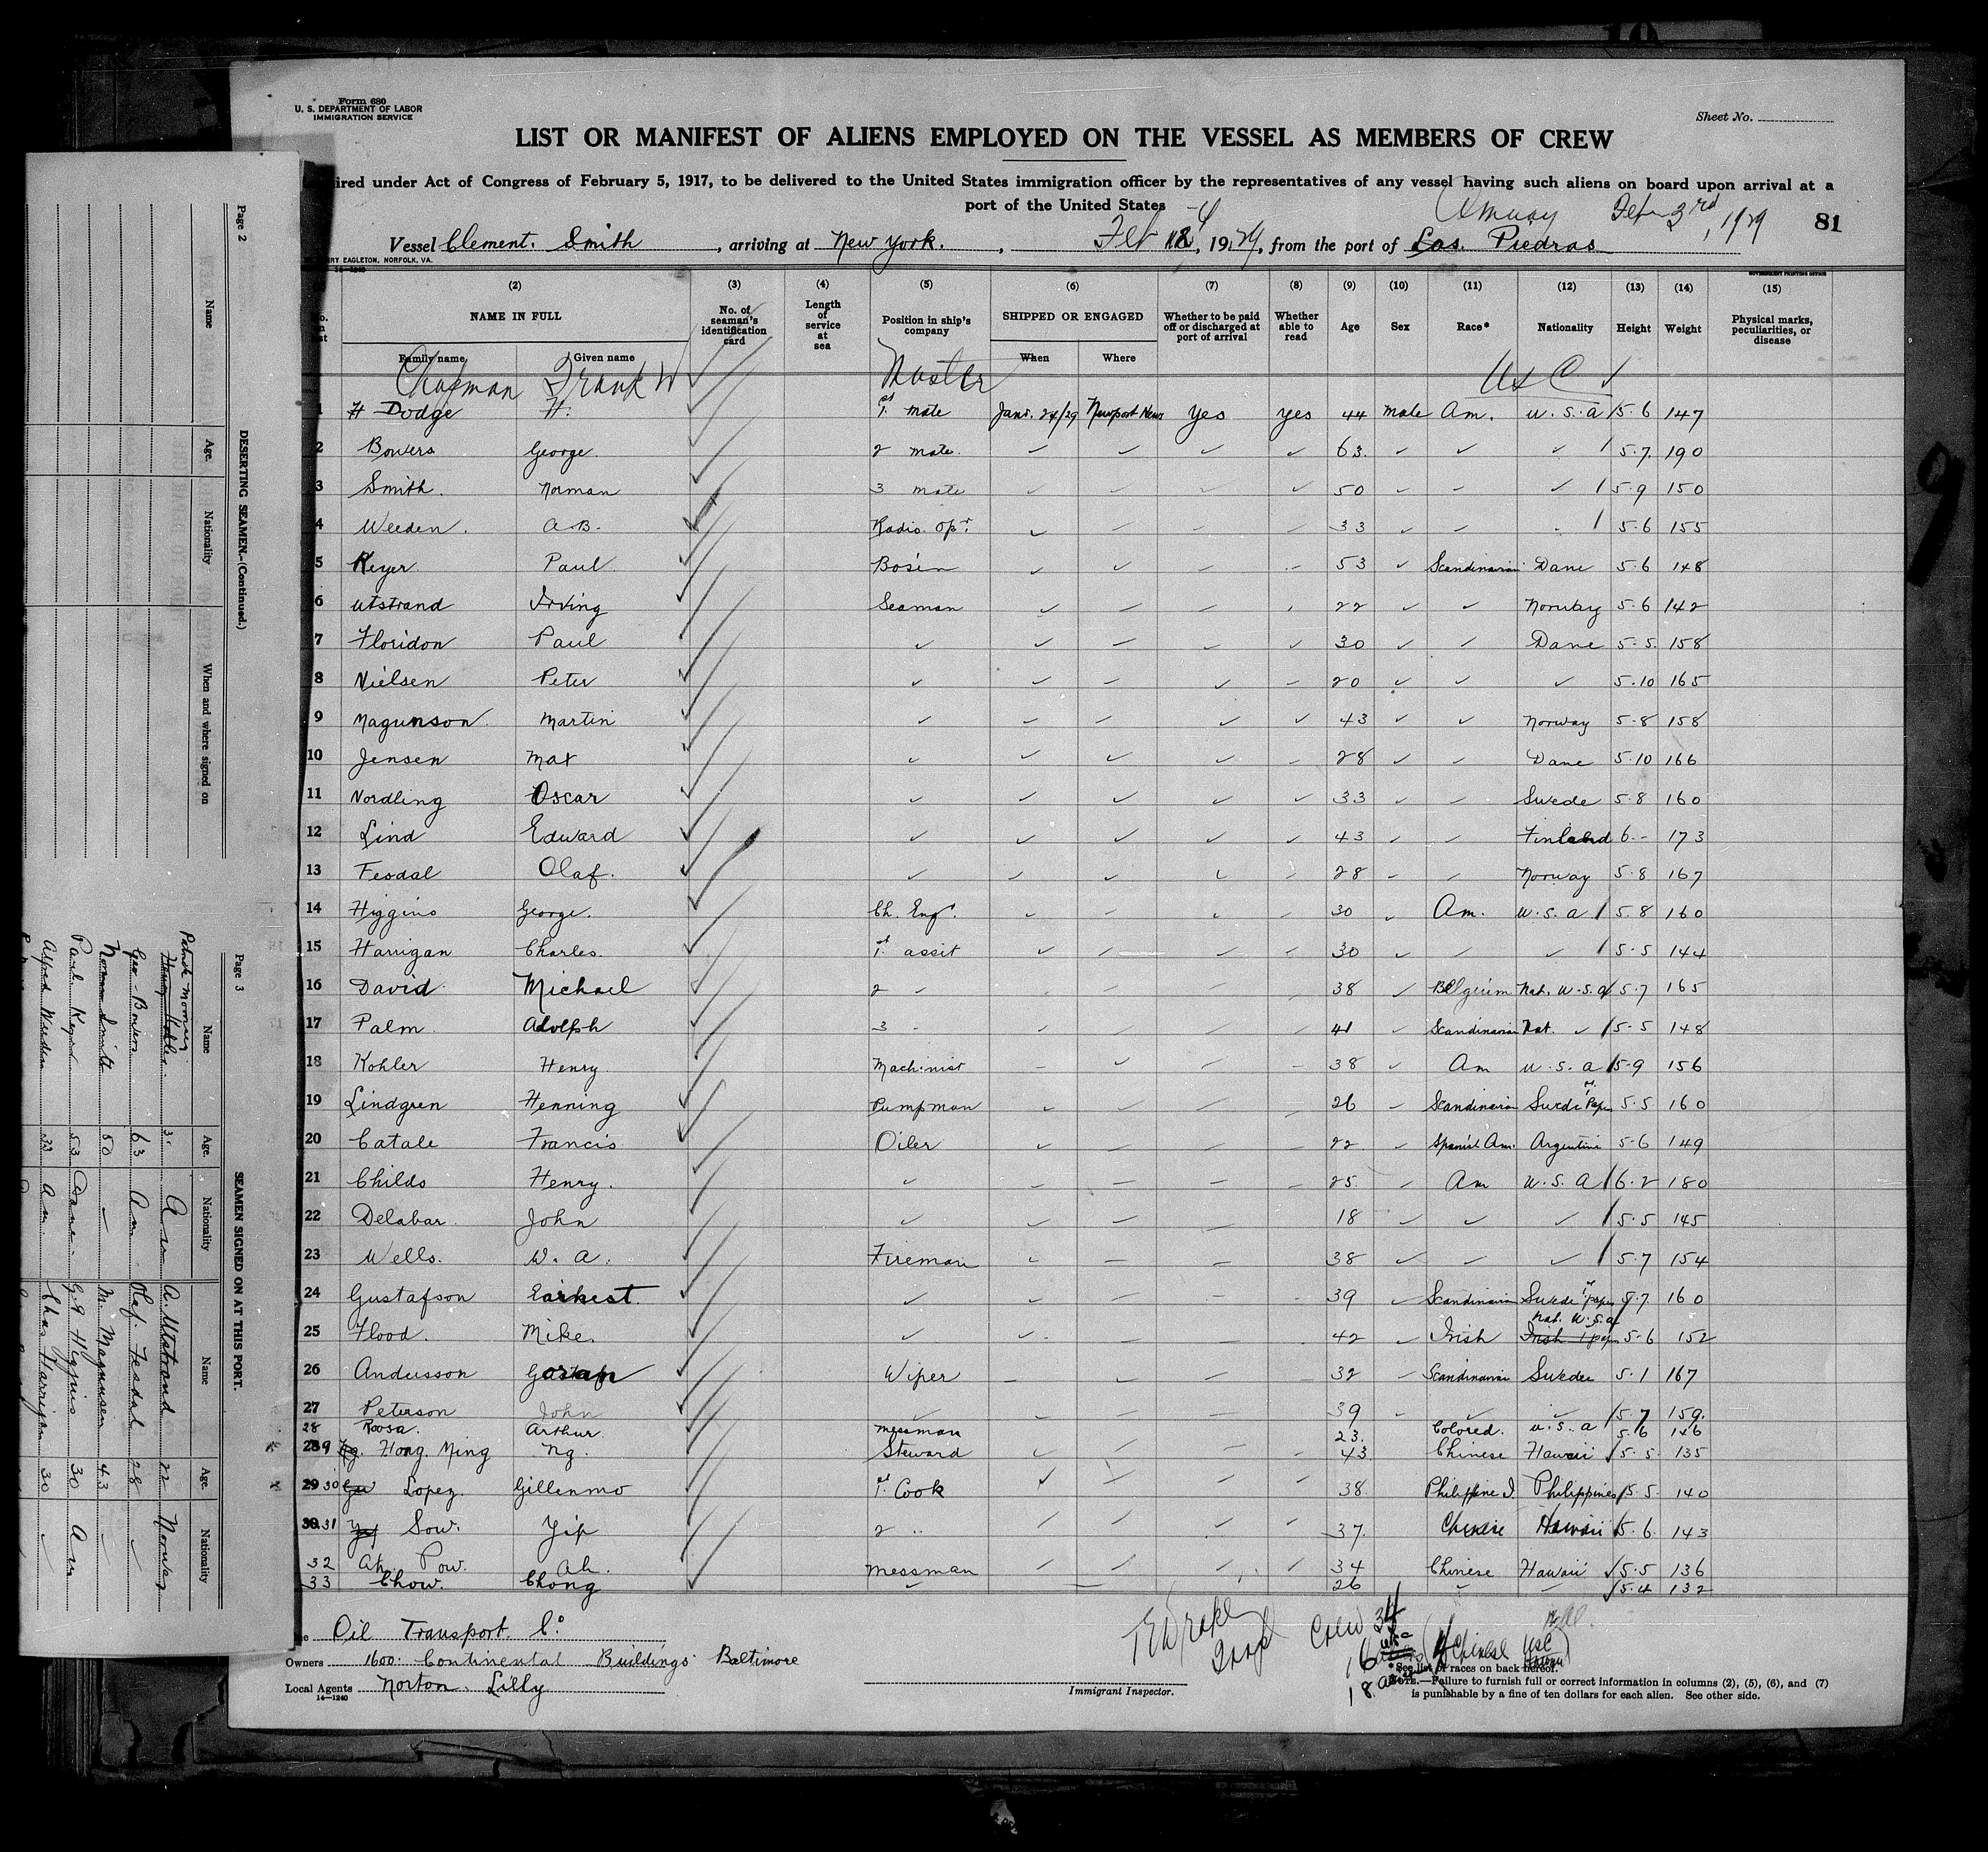 Form 680
U. S. DEPARTMENT OF LABOR
IMMIGRATION SERVICE
Sheet No.
LIST OR MANIFEST OF ALIENS EMPLOYED ON THE VESSEL AS MEMBERS OF CREW
ired under Act of Congress of February 5, 1917, to be delivered to the United States immigration officer by the representatives of any vessel having such aliens on board upon arrival at a
port of the United States
Amuay Feb 3rd, 1929
81
Vessel Clement. Smith, arriving at New York., Feb 1929, from the port of Las Piedras
RY EAGLETON, NORFOLK, VA.
14—1240
GOVERNMENT PRINTING OFFICE
(2) (3) (4) (5) (6) (7) (8) (9) (10) (11) (12) (13) (14) (15)
NAME IN FULL No. of seaman's identification card Length of service at sea Position in ship's company SHIPPED OR ENGAGED Whether to be paid off or discharged at port of arrival Whether able to read Age Sex Race* Nationality Height Weight Physical marks, peculiarities, or disease
Family name Given name When Where
Chapman Frank W Master USC ✓
1 Dodge H. 1st mate Jan. 24/29 Newport News Yes Yes 44 male Am. U.S.A 5.6 147
2 Bowers George. 2 mate. ✓ ✓ ✓ ✓ 63. ✓ ✓ ✓ 5.7. 190
3 Smith. Norman 3 mate ✓ ✓ ✓ ✓ 50 ✓ ✓ ✓ 5.9 150
4 Weeden. A.B. Radio. Opr. 33 5.6 155
5 Keyer Paul Bosén 53 ✓ Scandinavian Dane 5.6 148
6 Utstrand Irving Seaman 22 ✓ ✓ Norway 5.6 142
7 Floridon Paul ✓ 30 ✓ ✓ Dane 5.5. 158
8 Nielsen Peter ✓ 20 ✓ ✓ ✓ 5.10 165
9 Magunson. Martin ✓ 43 ✓ ✓ Norway 5.8 158
10 Jensen Max ✓ 28 ✓ ✓ Dane 5.10 166
11 Nordling Oscar ✓ 33 ✓ ✓ Swede 5.8 160
12 Lind Edward ✓ 43 ✓ ✓ Finland 6.- 173
13 Fesdal Olaf. ✓ 28 ✓ ✓ Norway 5.8 167
14 Higgins George. Ch. Engr. 30 ✓ Am. U.S.A 5.8 160
15 Harrigan Charles. 1st assit 30 ✓ ✓ ✓ 5.5 144
16 David Michael 2 38 ✓ Belgium Nat. U.S.A 5.7 165
17 Palm. Adolph 3 41 ✓ Scandinavian Nat. ✓ 5.5 148
18 Kohler Henry. Machinist 38 ✓ Am U.S.A 5.9 156
19 Lindgren Henning Pumpman 26 ✓ Scandinavian Swede 5.5 160
20 Catale Francis Oiler 22 ✓ Spanish Am. Argentine 5.6 149
21 Childs Henry. ✓ 25. ✓ Am U.S.A 6.2 180
22 Delabar. John ✓ 18 ✓ ✓ ✓ 5.5 145
23 Wells. W. A. Fireman 38 ✓ ✓ ✓ 5.7 154
24 Gustafson Earnest. ✓ 39 ✓ Scandinavian Swede 1st papers 5.7 160
25 Flood. Mike. ✓ 42 ✓ Irish Nat. U.S.A 5.6 152
26 Andersson Wiper 32 ✓ Scandinavian Swede 5.1 167
27 Peterson John ✓ 39 ✓ ✓ ✓ 5.7 159.
28 Roosa. Arthur. messman 23. Colored. U.S.A 5.6 146
29 Hong Ming Ng. Steward 43 Chinese Hawaii 5.5. 135
30 Lopez. Gillenmo 1st Cook 38. Philippine I. Philippines 5.5. 140
31 Sow. Yip 2 37. Chinese Hawaii 5.6. 143
32 Ah. Pow. Ah. messman 34 Chinese Hawaii 5.5 136
33 Chow. Chong ✓ 26 ✓ ✓ 5.4 132
Oil Transport. Co
Owners 1600. Continental Buildings. Baltimore
Local Agents Norton. Lilly
14—1240
Immigrant Inspector.
Crew 34
4 Chinese USC
*See list of races on back hereof.
NOTE.—Failure to furnish full or correct information in columns (2), (5), (6), and (7)
is punishable by a fine of ten dollars for each alien. See other side.
Page 2
DESERTING SEAMEN.—(Continued.)
Name Age. Nationality When and where signed on
Page 3
SEAMEN SIGNED ON AT THIS PORT.
Name Age. Nationality Name Age. Nationality
Patrick Mooney
A. Utstrand 22 Norway
Geo. Bowers 63 Am Olaf. Fesdal 28 ✓
Norman Smith 50 ✓ M. Magnusen 43 ✓
Paul Keyerd 53 Dane. G. A Higgins 30 Am
Alfred Weeden 33 Am. Chas Harrigan 30 ✓
9